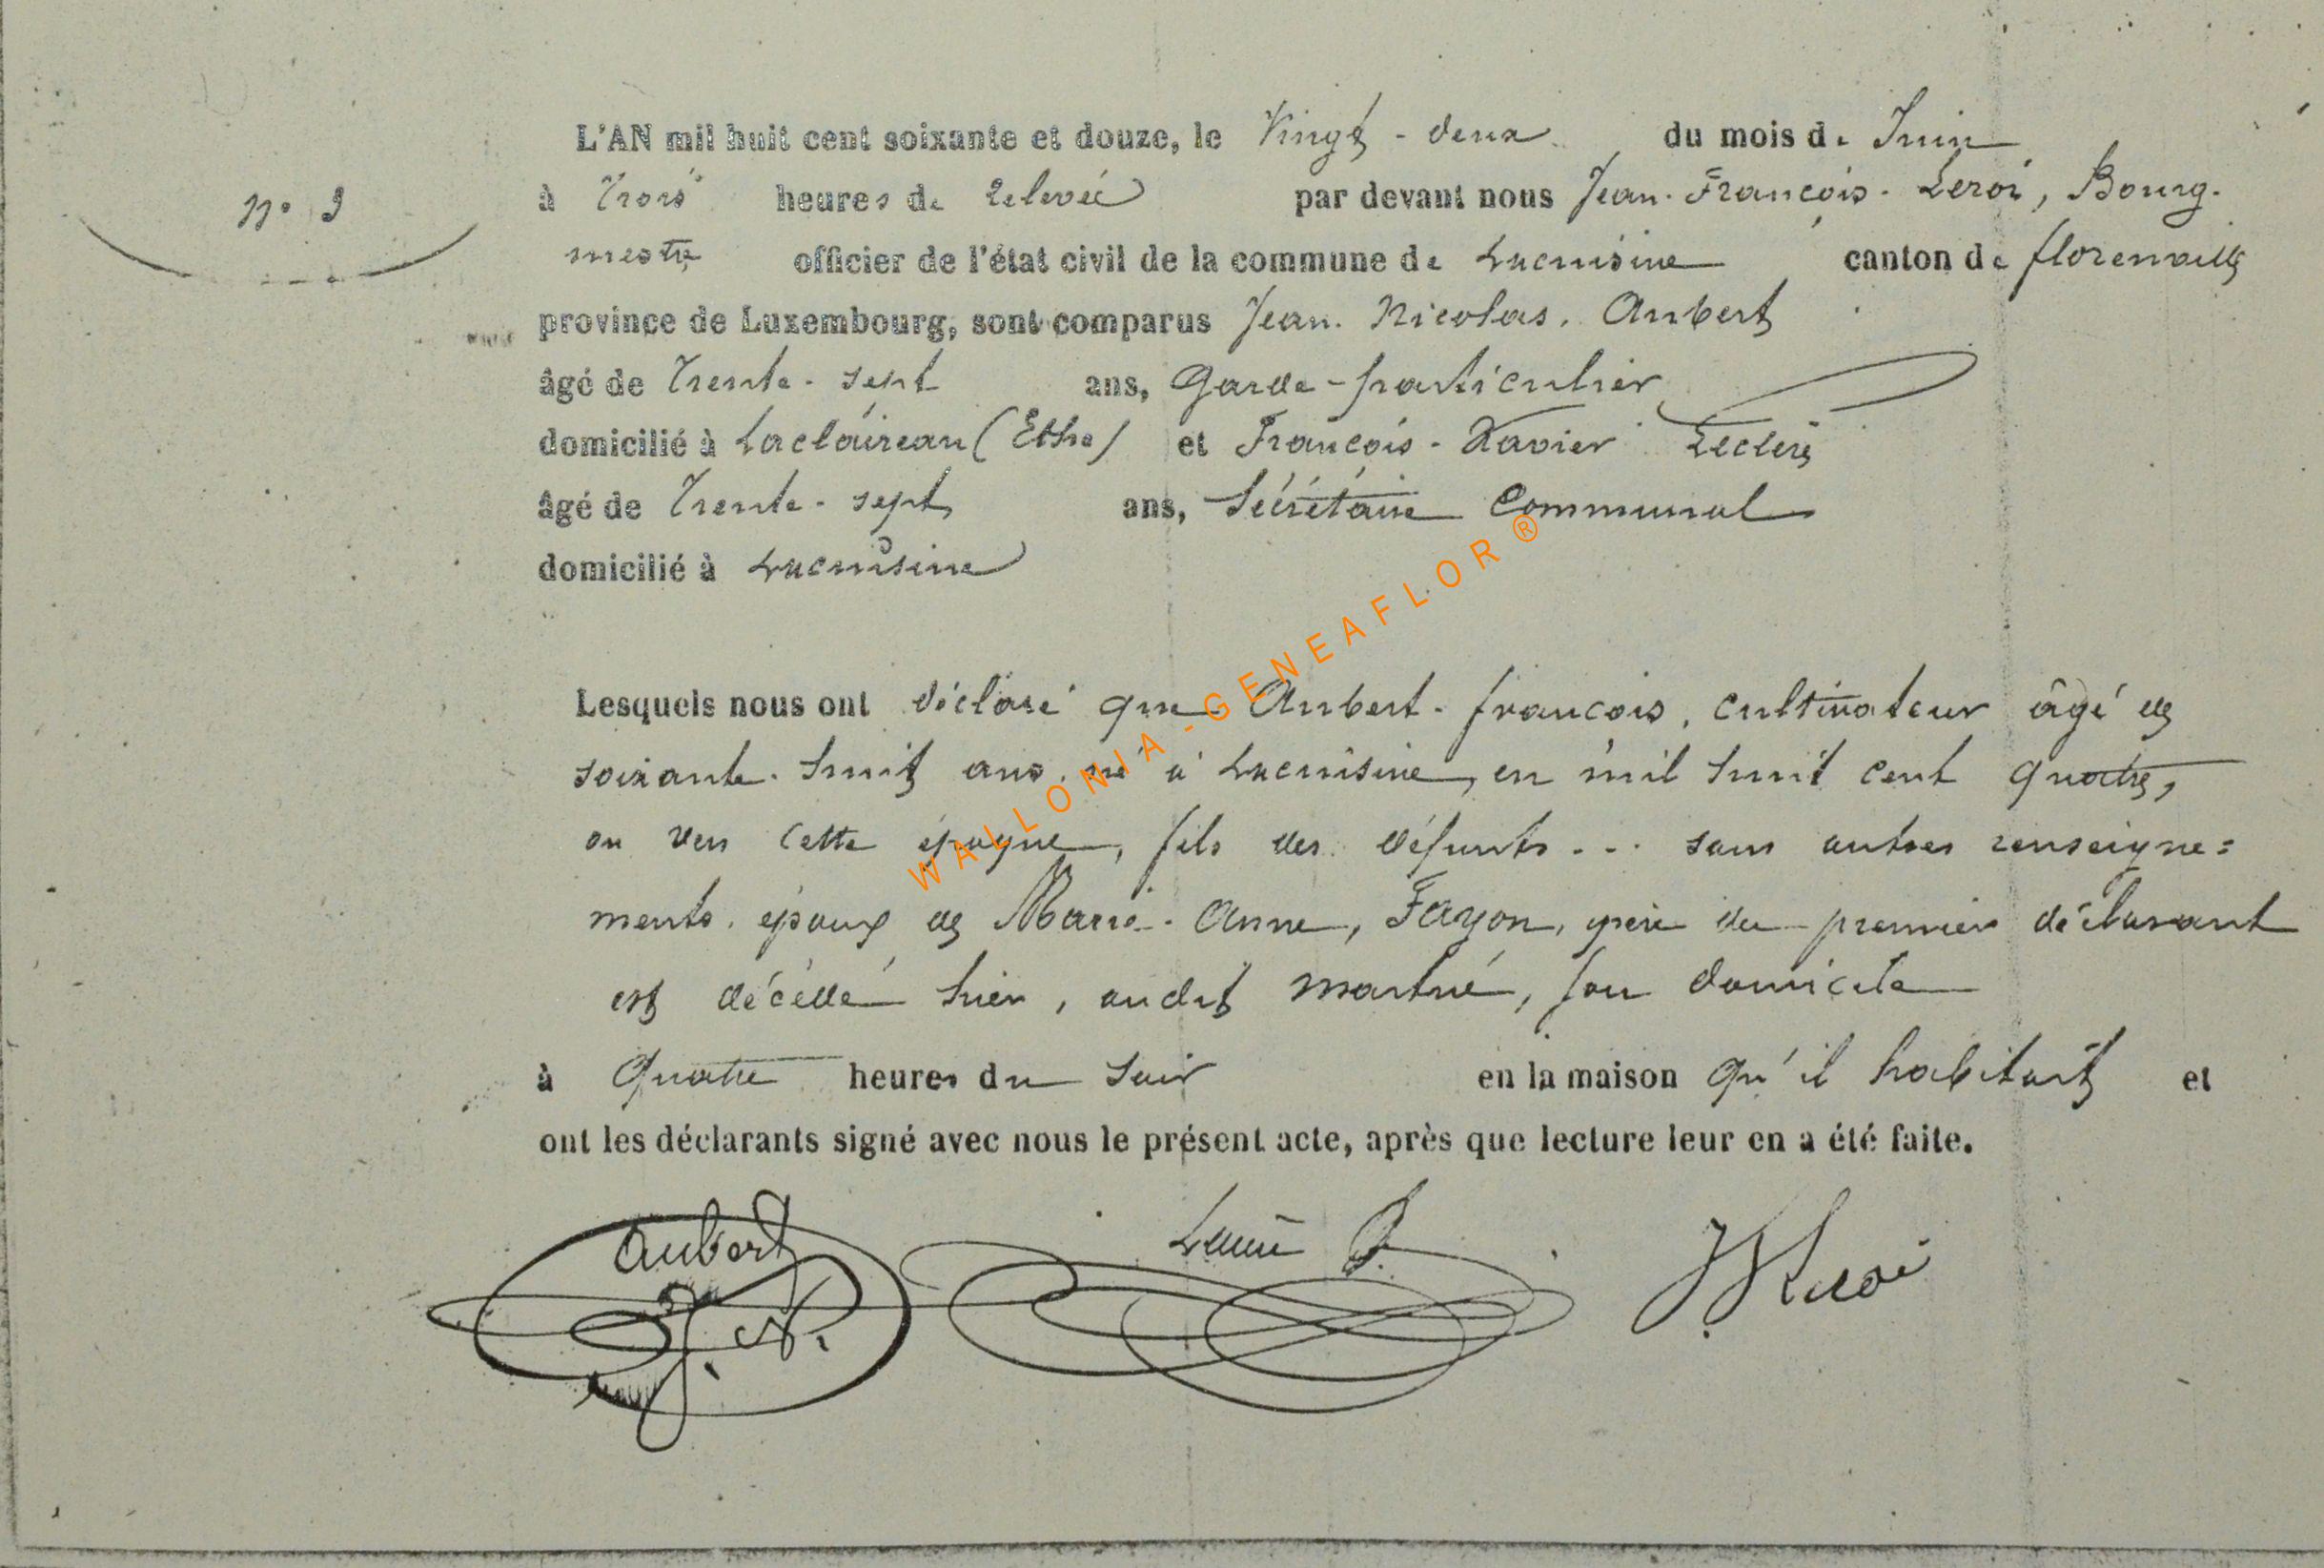 L'AN mil huit cent soixante et douze, le Vingt-deux du mois de Juin
N° 9
à Trois heures de relevée par devant nous Jean-François-Leroi, Bourg-
mestre officier de l'état civil de la commune de Lacuisine canton de florenville
province de Luxembourg, sont comparus Jean-Nicolas, Aubert
âgé de Trente-sept ans, Garde-particulier
domicilié à Laclaireau (Ethe) et François-Xavier
âgé de Trente-sept ans, Sécrétaire Communal
domicilié à Lacuisine
Lesquels nous ont déclaré que Aubert-françois, cultivateur âgé de
soixante-huit ans, né à Lacuisine, en mil huit cent quatre,
ou vers cette époque, fils des défunts... sans autres renseigne=
ments, époux de Marie-Anne, Fayon, père du premier déclarant
est décédé hier, audit Martué, son domicile
à Quatre heures du soir en la maison qu'il habitait et
ont les déclarants signé avec nous le présent acte, après que lecture leur en a été faite.
Aubert
J. N.
WALLONIA-GENEAFLOR®